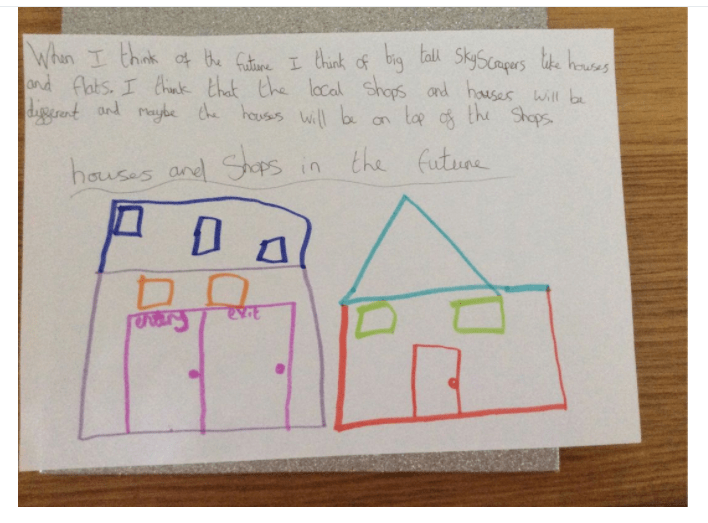 When I think of the future I think of big tall SkyScrapers like houses
and flats. I think that the local Shops and houses will be
different and maybe the houses will be on top of the Shops.
houses and Shops in the future
entary exit